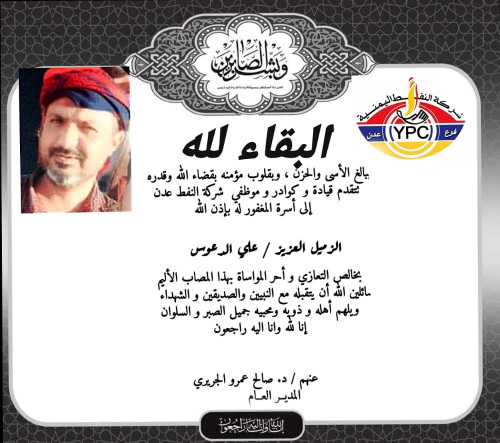 وبشر الصابرين
شركة النفط اليمنية
(YPC)
فرع عدن
البقاء لله
ببالغ الأسى والحزن ، وبقلوب مؤمنه بقضاء الله وقدره
تتقدم قيادة و كوادر و موظفي شركة النفط عدن
إلى أسرة المغفور له بإذن الله
الزميل العزيز / علي الدعوس
بخالص التعازي و أحر المواساة بهذا المصاب الأليم
سائلين الله أن يتقبله مع النبيين والصديقين و الشهداء
ويلهم أهله و ذويه ومحبيه جميل الصبر و السلوان
إنا لله وانا اليه راجعون
عنهم / د. صالح عمرو الجريري
المدير العام
إنا لله وإنا إليه راجعون